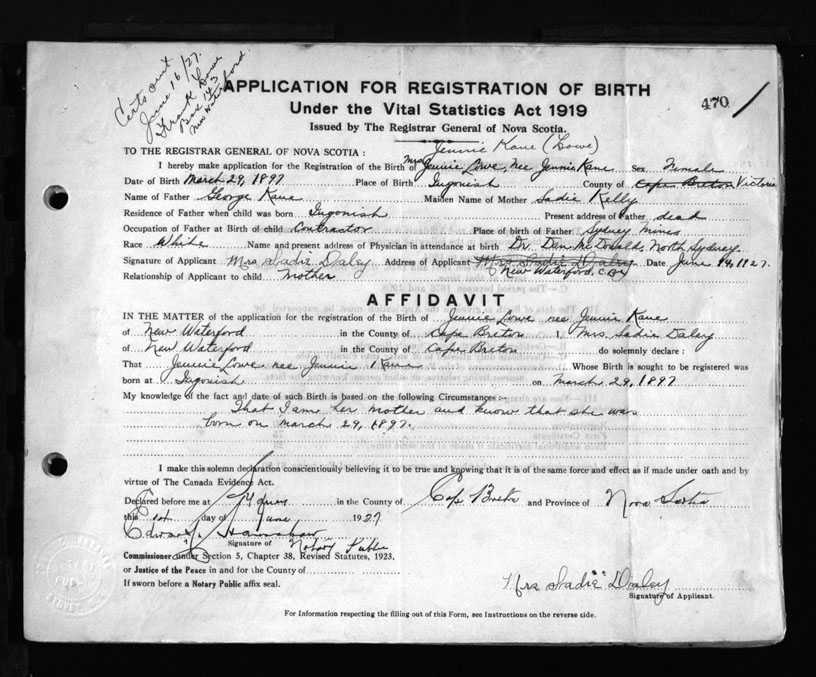 Certs out
June 16/27.
Frank Lowe
Box 143
New Waterford.
470
APPLICATION FOR REGISTRATION OF BIRTH
Under the Vital Statistics Act 1919
Issued by The Registrar General of Nova Scotia.
Jennie Kane (Lowe)
TO THE REGISTRAR GENERAL OF NOVA SCOTIA :
I hereby make application for the Registration of the Birth of Mrs Jennie Lowe, nee Jennie Kane Sex Female
Date of Birth March 29, 1897 Place of Birth Ingonish County of Cape Breton Victoria
Name of Father George Kane Maiden Name of Mother Sadie Kelly
Residence of Father when child was born Ingonish Present address of Father dead
Occupation of Father at Birth of child Contractor Place of birth of Father Sydney Mines
Race White Name and present address of Physician in attendance at birth Dr. Dan McDonald, North Sydney.
Signature of Applicant Mrs Sadie Daley Address of Applicant Mrs. Sadie Daley Date June 14, 1927.
New Waterford, C.B.
Relationship of Applicant to child mother
AFFIDAVIT
IN THE MATTER of the application for the registration of the Birth of Jennie Lowe nee Jennie Kane
of New Waterford in the County of Cape Breton I, Mrs. Sadie Daley
of New Waterford in the County of Cape Breton do solemnly declare :
That Jennie Lowe nee Jennie Kane Whose Birth is sought to be registered was
born at Ingonish on March 29, 1897
My knowledge of the fact and date of such Birth is based on the following Circumstances :-
That I am her mother and know that she was
born on march 29, 1897.
I make this solemn declaration conscientiously believing it to be true and knowing that it is of the same force and effect as if made under oath and by
virtue of The Canada Evidence Act.
Declared before me at Sydney in the County of Cape Breton and Province of Nova Scotia
this day of June 1927
Edward
Signature of Notary Public
Commissioner under Section 5, Chapter 38, Revised Statutes, 1923.
or Justice of the Peace in and for the County of
If sworn before a Notary Public affix seal.
Mrs Sadie Daley
Signature of Applicant.
For Information respecting the filling out of this Form, see Instructions on the reverse side.